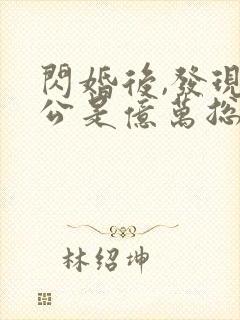 閃婚後,發現
公是億萬总
林绍坤